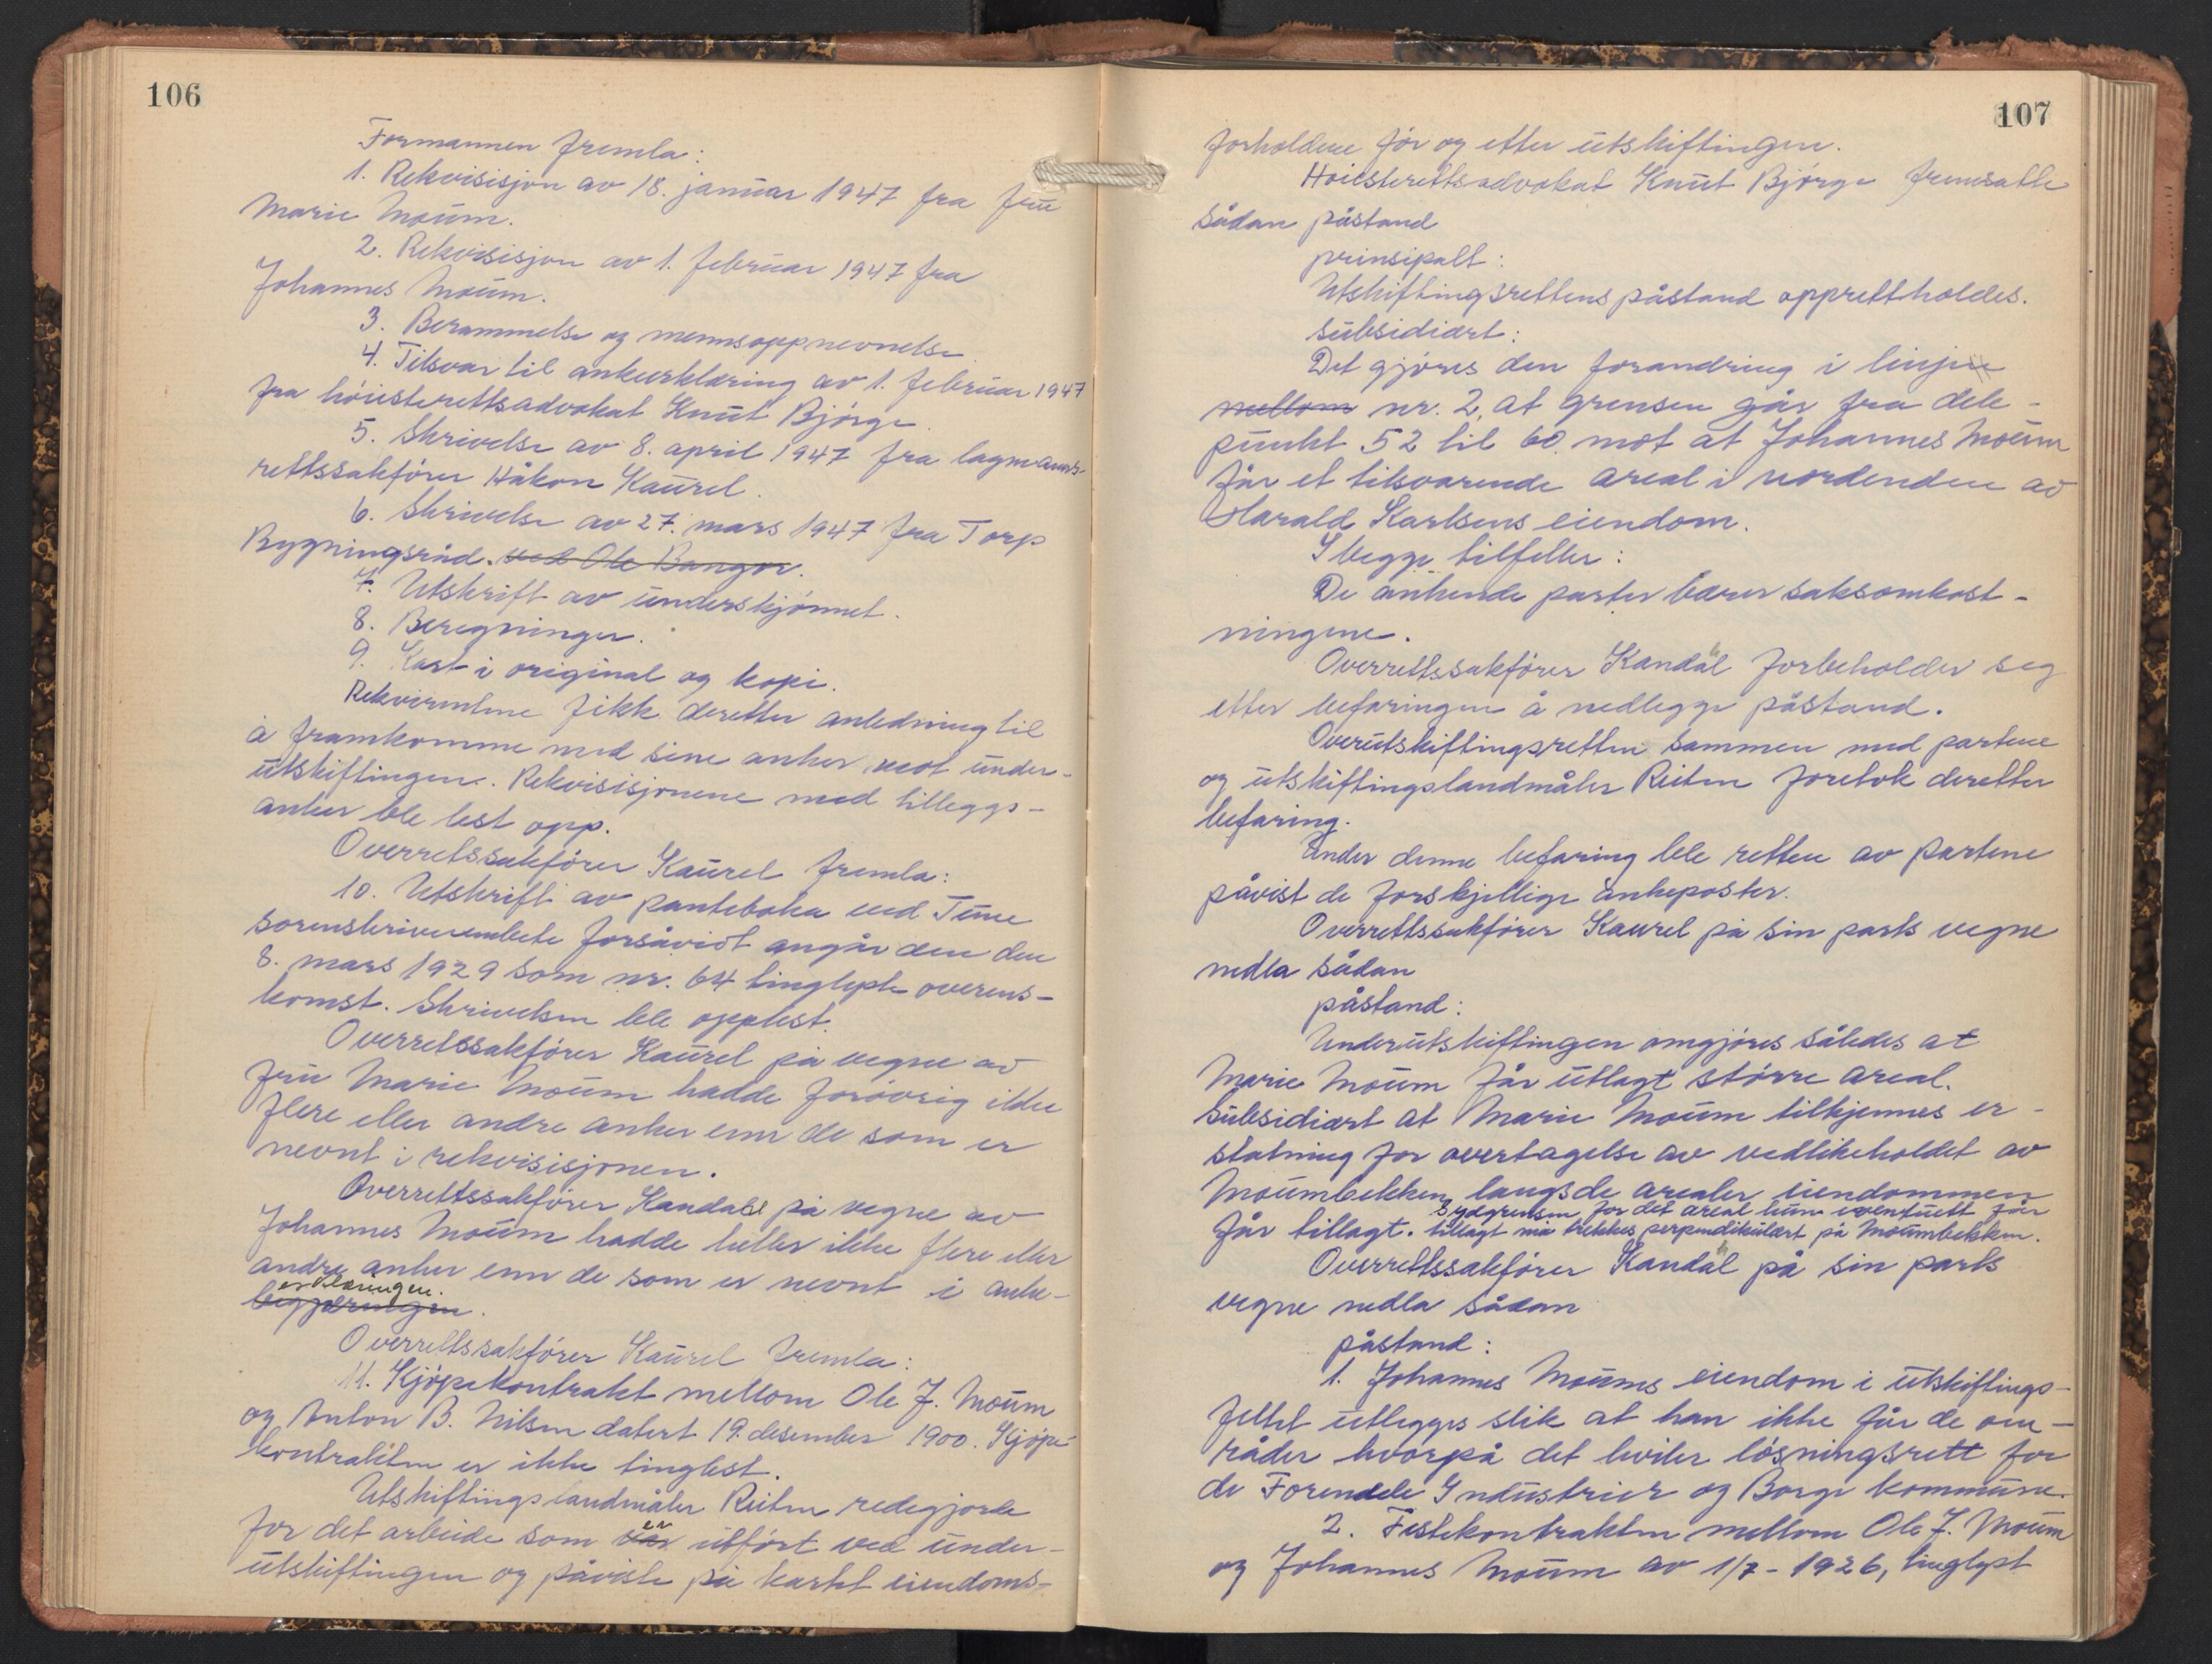 106
Formannen fremla:
1. Rekvisisjon av 18. januar 1947 fra frue
Marie Moum.
2. Rekvisisjon av 1. februar 1947 fra
Johannes Moum.
3. Berammelse og mennsoppnevnelse
4. Tilsvar til ankeerklæring av 1. februar 1947
fra höiesterettsadvokat Knut Bjørge.
5. Skrivelse av 8. april 1947 fra lagmanns-
rettssakförer Håkon Kaurel.
6. Skrivelse av 27. mars 1947 fra Torp
Bygningsråd. ved Ole Bangor.
7. Utskrift av underskjönnet.
8. Beregninger.
9. Kart i original og kopi.
Rekvirentene fikk deretter anledning til
å framkomme med sine anker mot under-
utskiftingen. Rekvisisjonene med tilleggs-
anker ble lest opp.
Overretssakförer Kaurel fremla:
10. Utskrift av panteboka ved Tune
sorenskriverembete forsåvidt angår den den
8. mars 1929 som nr. 64 tinglyste overens-
komst. Skrivelsen ble opplest.
Overretssakförer Kaurel på vegne av
fru Marie Moum hadde forøvrig ikke
flere eller andre anker enn de som er
nevnt i rekvisisjonen.
Overrettssakförer Kandal på vegne av
Johannes Moum hadde heller ikke flere eller
andre anker enn de som er nevnt i anke-
erklæringen.
begjæringen.
Overrettssakförer Kaurel fremla:
11. Kjöpekontrakt mellom Ole J. Moum
og Anton B. Nilsen datert 19. desember 1900. Kjöpe-
kontrakten er ikke tinglest.
Utskiftingslandmåler Reiten redegjorde
for det arbeide som var er utfört ved under-
utskiftingen og påviste på kartet eiendoms-
107
forholdene för og etter utskiftingen.
Höiesterettsadvokat Knut Bjørge fremsatte
sådan påstand
prinsipalt:
Utskiftingsrettens påstand opprettholdes.
subsidiært:
Det gjöres den forandring i linjen
mellom nr. 2, at grensen går fra dele-
punkt 52 til 60 mot at Johannes Moum
får et tilsvarende areal i nordenden av
Harald Karlsens eiendom.
I begge tilfeller:
De ankende parter bærer saksomkost-
ningene.
Overrettssakförer Kandal forbeholder seg
etter befaringen å nedlegge påstand.
Overutskiftingsretten sammen med partene
og utskiftingslandmåler Reiten foretok deretter
befaring.
Under denne befaring ble retten av partene
påvist de forskjellige ankeposter.
Overrettssakförer Kaurel på sin parts vegne
nedla sådan
påstand:
Underutskiftingen omgjöres således at
Marie Moum får utlagt större areal.
Subsidiært at Marie Moum tilkjennes er-
statning for overtagelse av vedlikeholdet av
Moumbekken langs de arealer eiendommen
får tillagt. Sydgrensen for det areal hun eventuelt får
tillagt må trekkes perpendikulært på Moumbekken.
Overrettssakförer Kandal på sin parts
vegne nedla sådan
påstand:
1. Johannes Moums eiendom i utskiftings-
feltet utlegges slik at han ikke får de om-
råder hvorpå det hviler lösningsrett for
de Forenede Industrier og Borge kommune.
2. Festekontrakten mellom Ole J. Moum
og Johannes Moum av 1/7 - 1926, tinglyst